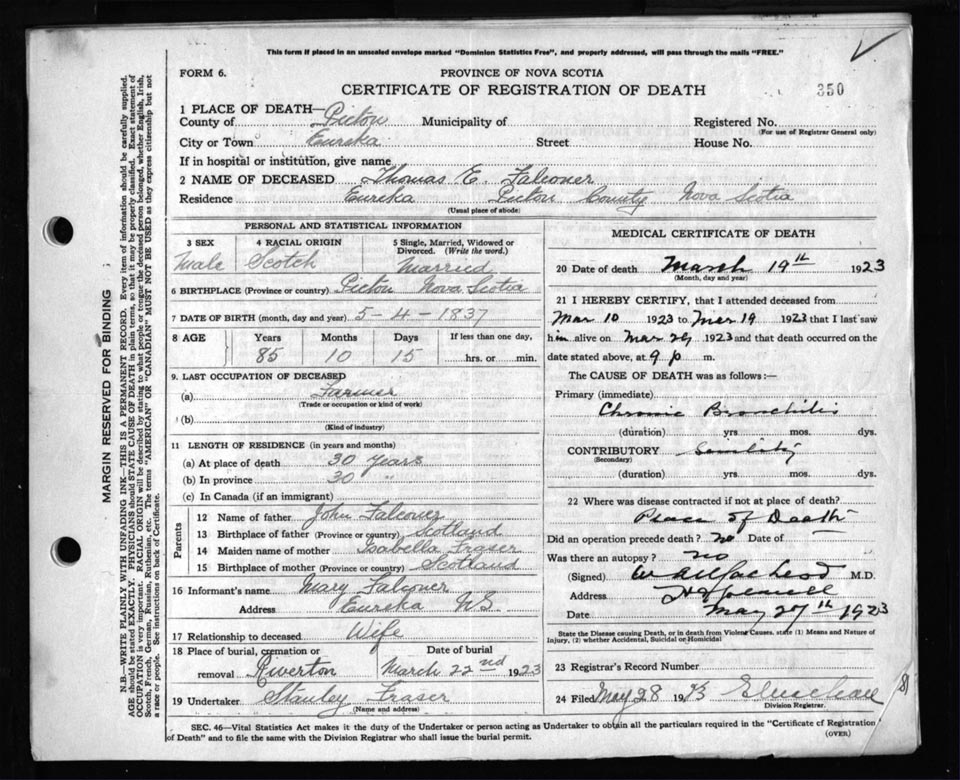 This form if placed in an unsealed envelope marked "Dominion Statistics Free", and properly addressed, will pass through the mails "FREE."
FORM 6.
PROVINCE OF NOVA SCOTIA
CERTIFICATE OF REGISTRATION OF DEATH
350
1 PLACE OF DEATH—
County of Pictou Municipality of Registered No.
(For use of Registrar General only)
City or Town Eureka Street House No.
If in hospital or institution, give name
2 NAME OF DECEASED Thomas E. Falconer
Residence Eureka Pictou County Nova Scotia
(Usual place of abode)
PERSONAL AND STATISTICAL INFORMATION
3 SEX 4 RACIAL ORIGIN 5 Single, Married, Widowed or Divorced. (Write the word.)
Male Scotch Married
6 BIRTHPLACE (Province or country) Pictou Nova Scotia
7 DATE OF BIRTH (month, day and year) 5-4-1837
8 AGE Years Months Days If less than one day,
85 10 15 hrs. or min.
9. LAST OCCUPATION OF DECEASED
(a) Farmer
(Trade or occupation or kind of work)
(b)
(Kind of industry)
11 LENGTH OF RESIDENCE (in years and months)
(a) At place of death 30 years
(b) In province 30 "
(c) In Canada (if an immigrant)
Parents
12 Name of father John Falconer
13 Birthplace of father (Province or country) Scotland
14 Maiden name of mother Isabella Fraser
15 Birthplace of mother (Province or country) Scotland
16 Informant's name Mary Falconer
Address Eureka NS.
17 Relationship to deceased Wife
18 Place of burial, cremation or removal Date of burial
Riverton March 22nd 1923
19 Undertaker Stanley Fraser
(Name and address)
MEDICAL CERTIFICATE OF DEATH
20 Date of death March 19th 1923
(Month, day and year)
21 I HEREBY CERTIFY, that I attended deceased from
Mar 10 1923 to Mar 19 1923 that I last saw
him alive on Mar 1923 and that death occurred on the
date stated above, at 9 p m.
The CAUSE OF DEATH was as follows:—
Primary (immediate)
Chronic Bronchitis
(duration) yrs. mos. dys.
CONTRIBUTORY Senility
(Secondary)
(duration) yrs. mos. dys.
22 Where was disease contracted if not at place of death?
Place of Death
Did an operation precede death? no Date of
Was there an autopsy? no
(Signed) M.D.
Address
Date May 27th 1923
State the Disease causing Death, or in death from Violent Causes, state (1) Means and Nature of Injury, (2) whether Accidental, Suicidal or Homicidal
23 Registrar's Record Number
24 Filed May 28 1923
Division Registrar.
SEC. 46—Vital Statistics Act makes it the duty of the Undertaker or person acting as Undertaker to obtain all the particulars required in the "Certificate of Registration
of Death" and to file the same with the Division Registrar who shall issue the burial permit.
(OVER)
MARGIN RESERVED FOR BINDING
N.B.—WRITE PLAINLY WITH UNFADING INK—THIS IS A PERMANENT RECORD. Every item of information should be carefully supplied.
AGE should be stated EXACTLY. PHYSICIANS should STATE CAUSE OF DEATH in plain terms, so that it may be properly classified. Exact statement of
OCCUPATION is very important. RACIAL ORIGIN will be described by stating to what people or tongue the deceased person belonged, whether English, Irish,
Scotch, French, German, Russian, Ruthenian, etc. The terms "AMERICAN" OR "CANADIAN" MUST NOT BE USED as they express citizenship but not
a race or people. See instructions on back of Certificate.